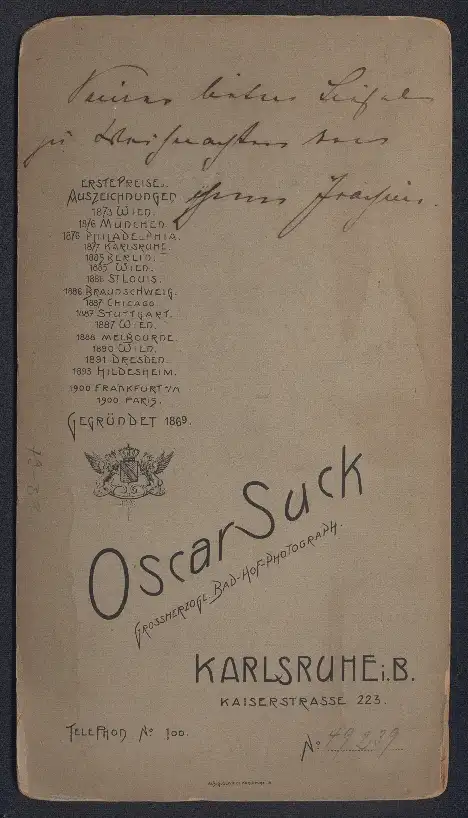 Seiner lieben
zu Weihnachten von
ihrem Joachim.
ERSTE PREISE U.
AUSZEICHNUNGEN
1873 WIEN.
1876 MÜNCHEN.
1876 PHILADELPHIA.
1877 KARLSRUHE.
1883 BERLIN.
1885 WIEN.
1886 ST LOUIS.
1886 BRAUNSCHWEIG.
1887 CHICAGO.
1887 STUTTGART.
1887 WIEN.
1888 MELBOURNE.
1890 WIEN.
1891 DRESDEN.
1893 HILDESHEIM.
1900 FRANKFURT A/M
1900 PARIS.
GEGRÜNDET 1869.
OSCAR SUCK
GROSSHERZOGL. BAD-HOF-PHOTOGRAPH.
KARLSRUHE i. B.
KAISERSTRASSE 223.
TELEPHON No 100.
No